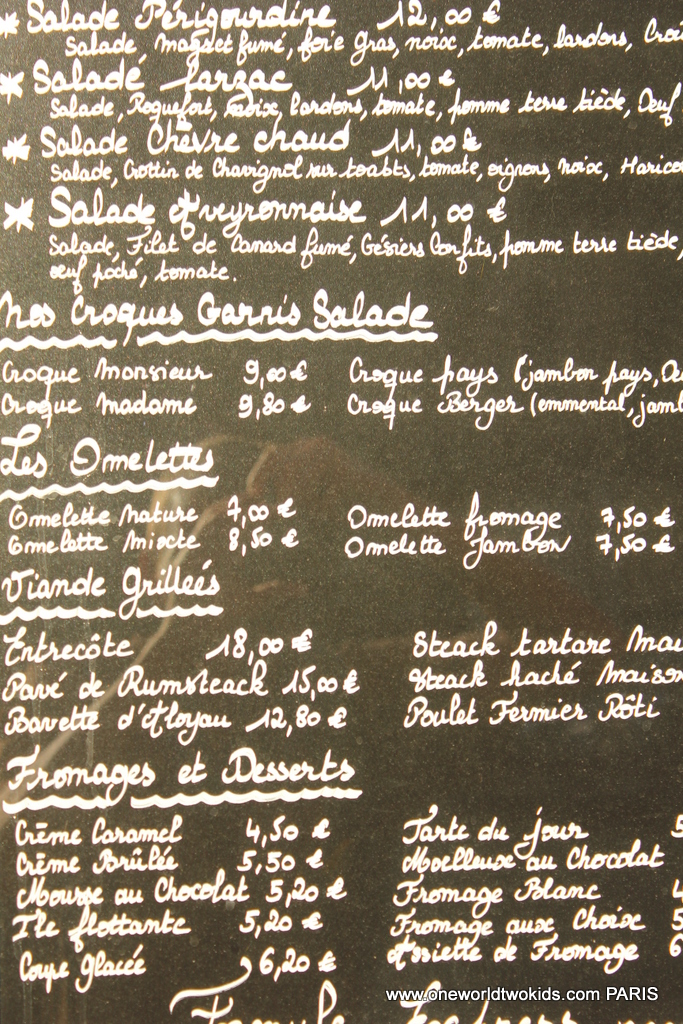 * Salade Périgourdine 12,00 €
Salade, magret fumé, foie gras, noix, tomate, lardons,
* Salade Larzac 11,00 €
Salade, Roquefort, noix, lardons, tomate, pomme terre tiède, Oeuf
* Salade Chèvre chaud 11,00 €
Salade, Crottin de Chavignol sur toasts, tomate, oignons, noix,
* Salade Aveyronnaise 11,00 €
Salade, Filet de Canard fumé, Gésiers Confits, pomme terre tiède,
œuf poché, tomate.
Nos Croques Garnis Salade
Croque Monsieur 9,00 € Croque pays (jambon pays,
Croque Madame 9,80 € Croque Berger (emmental,
Les Omelettes
Omelette Nature 7,00 € Omelette fromage 7,50 €
Omelette Mixte 8,50 € Omelette Jambon 7,50 €
Viande Grilleés
Entrecôte 18,00 € Steack tartare
Pavé de Rumsteack 15,00 € Steack haché Maison
Bavette d'Aloyau 12,80 € Poulet Fermier Rôti
Fromages et Desserts
Crème Caramel 4,50 € Tarte du jour 5
Crème Brûlée 5,50 € Moelleux au Chocolat
Mousse au Chocolat 5,20 € Fromage Blanc 4
Ile flottante 5,20 € Fromage aux Choix 5
Coupe glacée 6,20 € Assiette de Fromage 6
www.oneworldtwokids.com PARIS